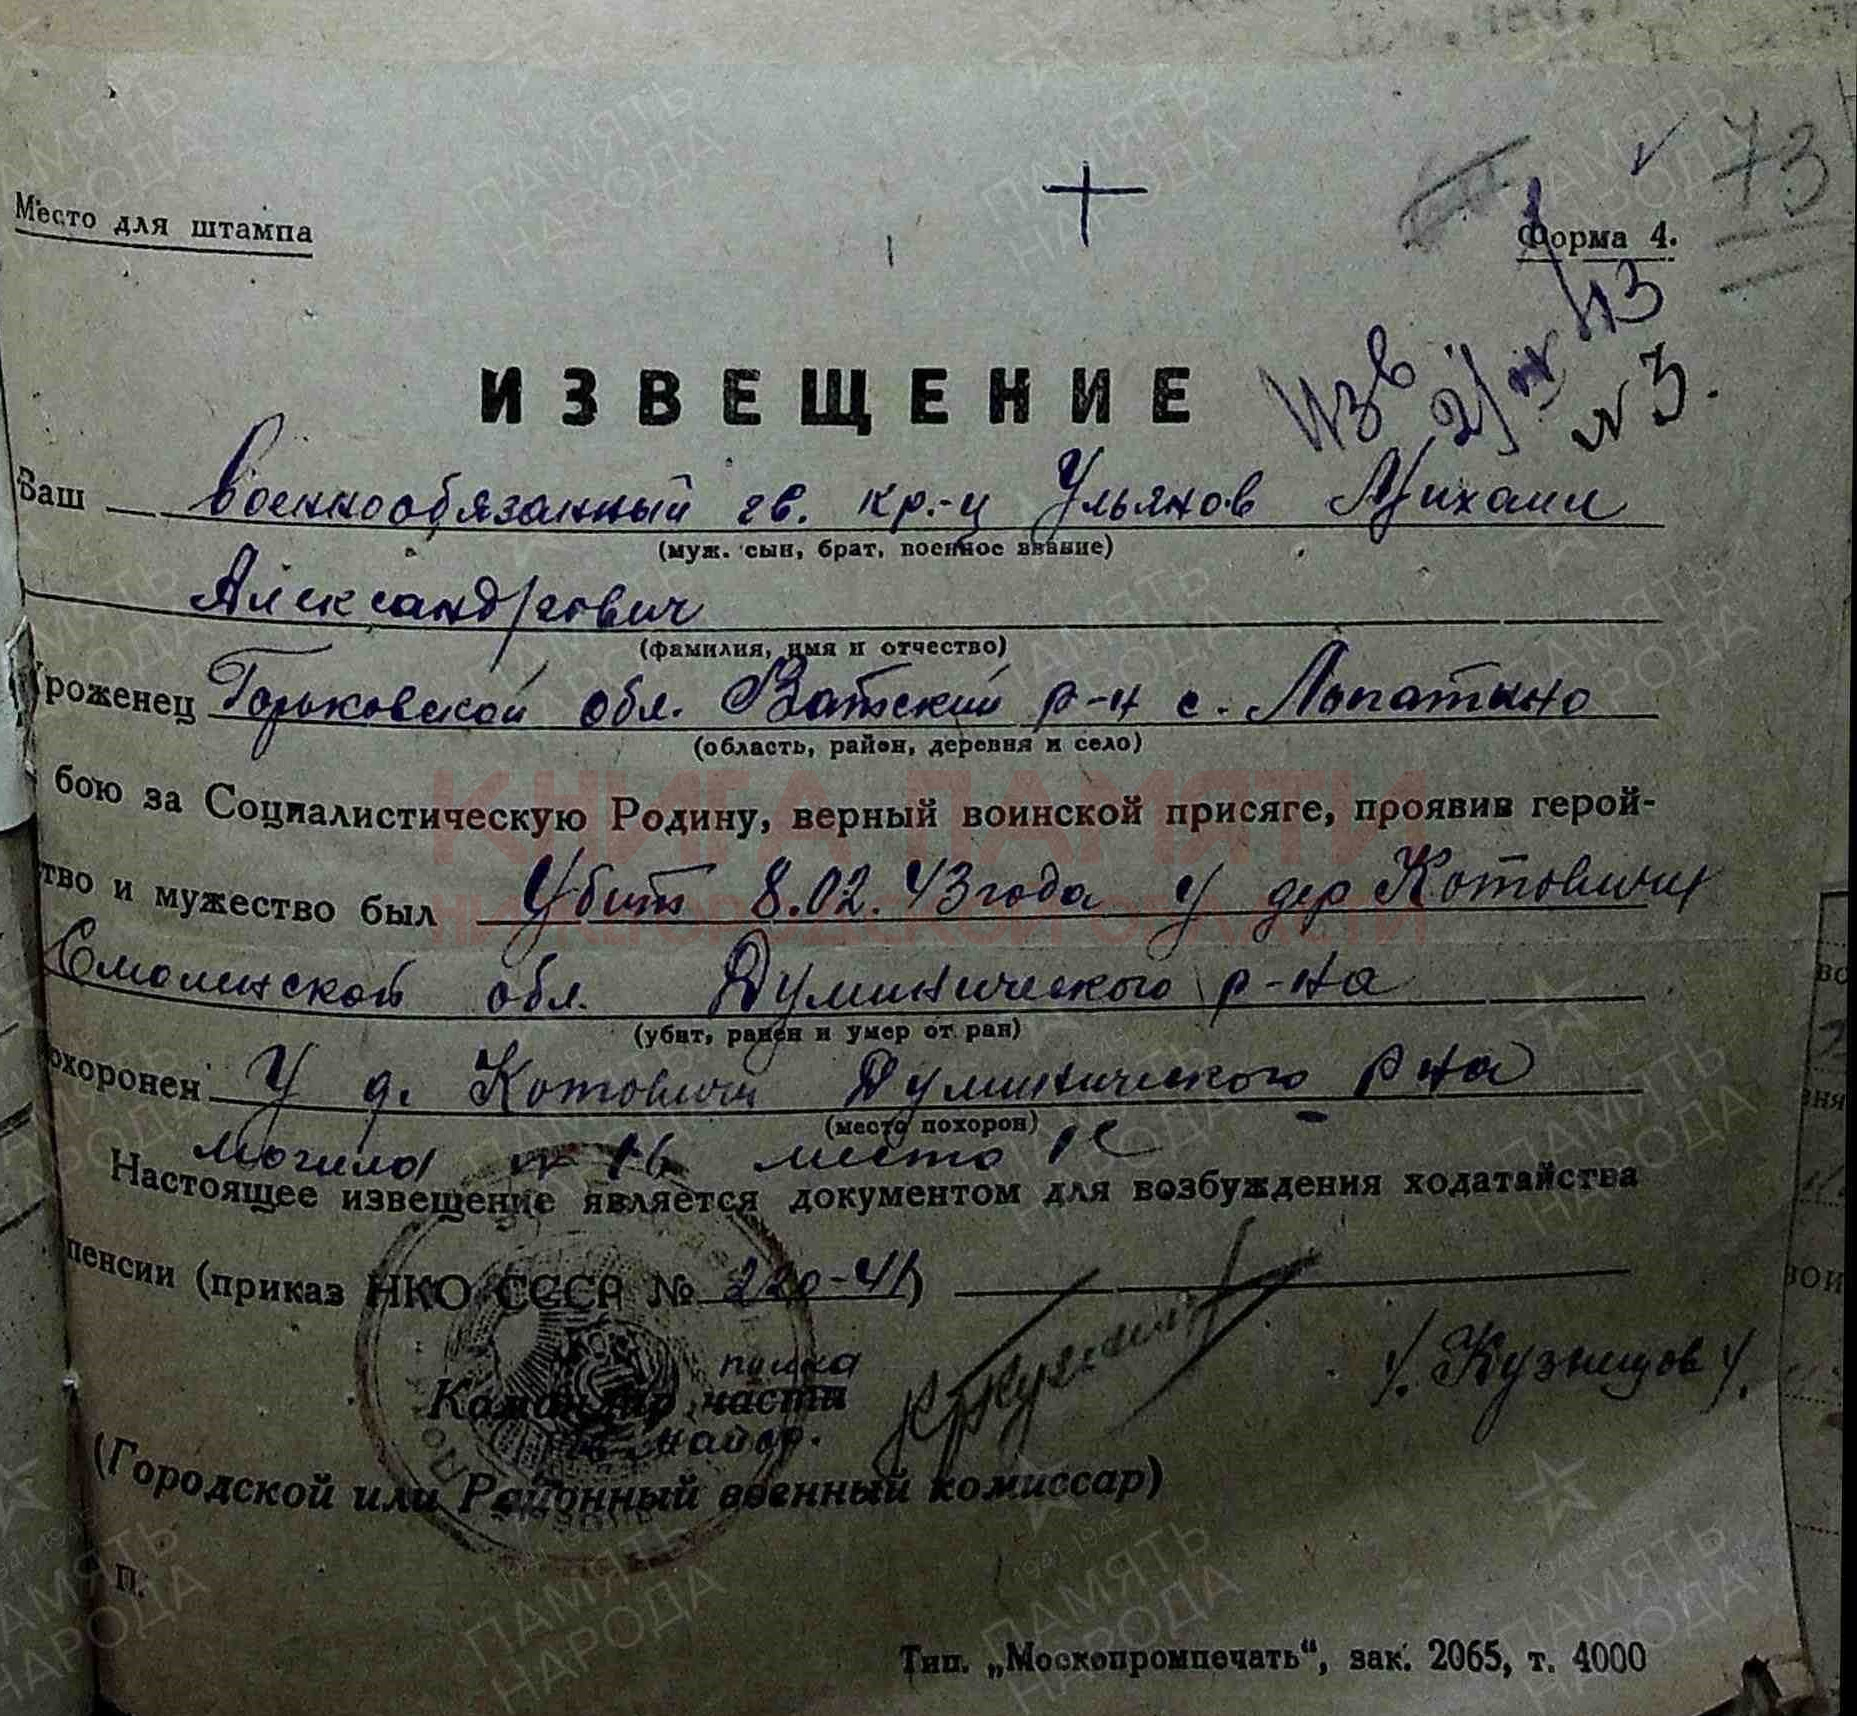 73
Место для штампа
Форма 4.
Изв 2/IX 43
№ 3.
ИЗВЕЩЕНИЕ
Ваш военнообязанный гв. кр-ц Ульянов Михаил
(муж. сын, брат, военное звание)
Александрович
(фамилия, имя и отчество)
Уроженец Горьковской обл. Ватский р-н с. Лопаткино
(область, район, деревня и село)
бою за Социалистическую Родину, верный воинской присяге, проявив герой-
тво и мужество был Убит 8.02.43 года у дер Котовичи
Смоленской обл. Думинического р-на
(убит, ранен и умер от ран)
охоронен У д. Котовичи Думинического р-на
(место похорон)
могила № 16 место
Настоящее извещение является документом для возбуждения ходатайства
пенсии (приказ НКО СССР № 220-41)
полка
Командир части
гв. майор. /. Кузнецов /.
(Городской или Районный военный комиссар)
п.
Тип. „Москопромпечать“, зак. 2065, т. 4000
КНИГА ПАМЯТИ
НИЖЕГОРОДСКОЙ ОБЛАСТИ
ПАМЯТЬ НАРОДА